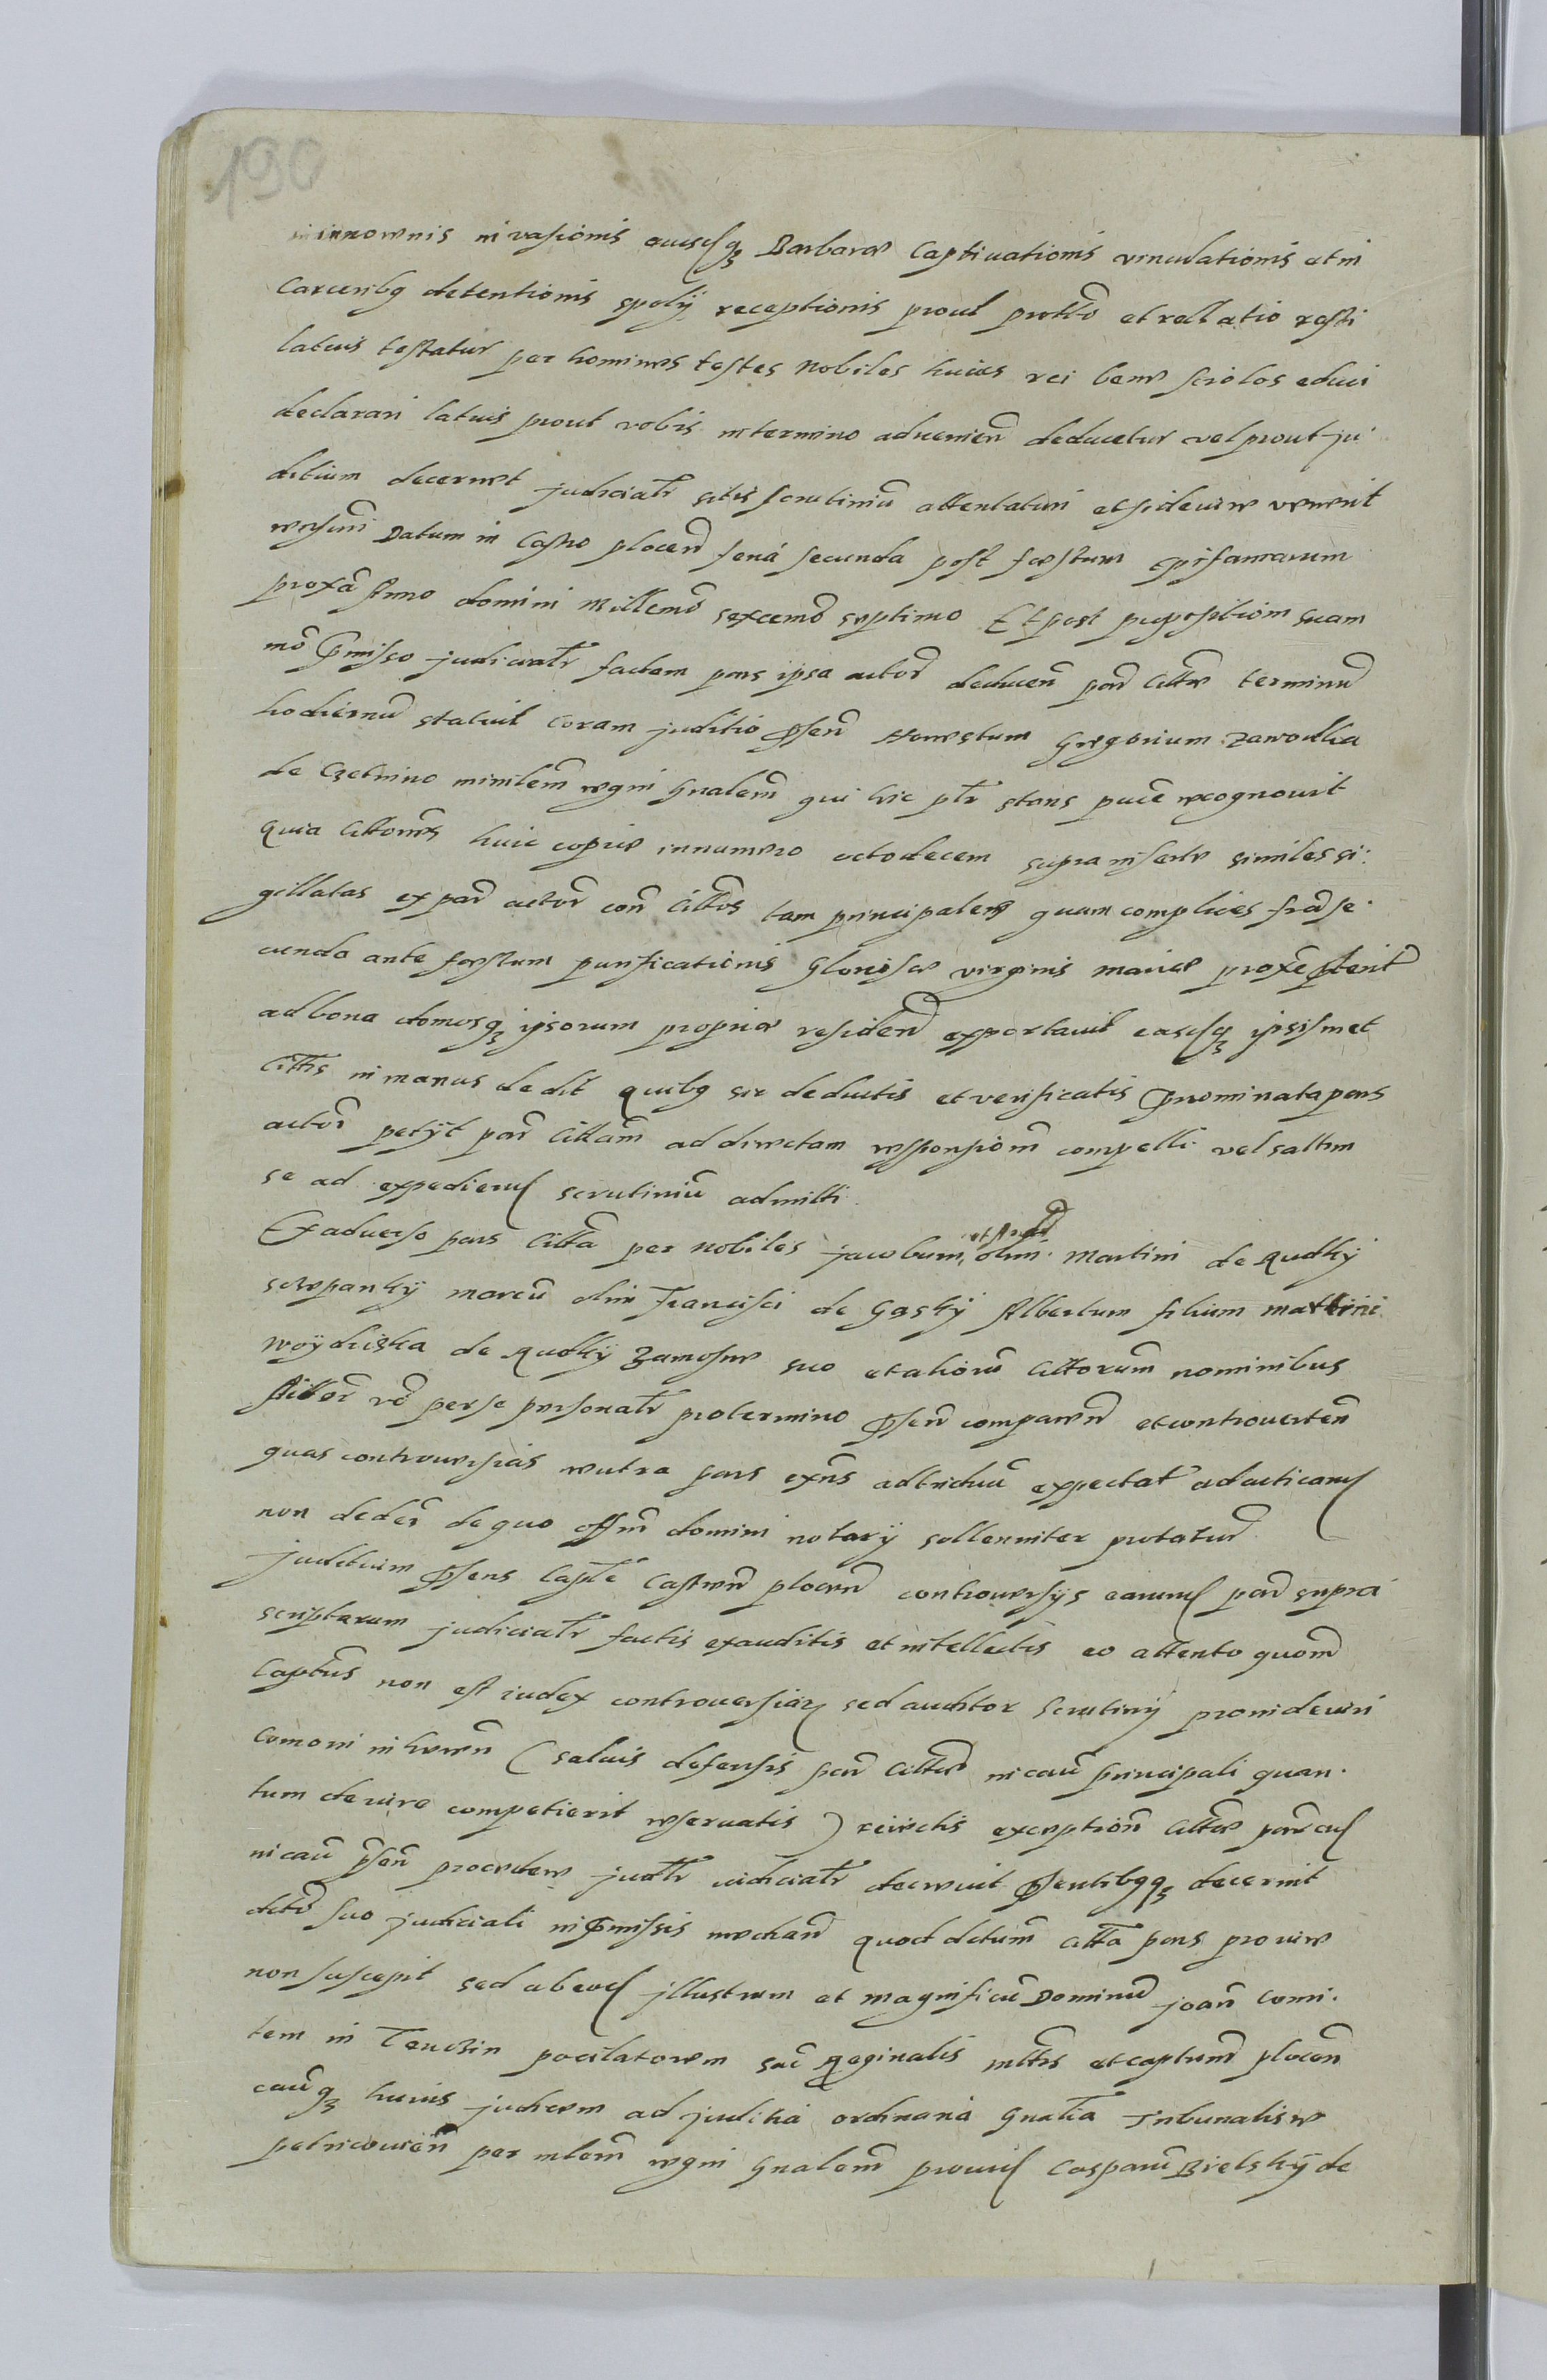 190
invasionis eiusdq3 Barbaræ Captivationis vinculationis et in
Carceribq detentionis spolÿ receptionis prout prottō et rellatio
latius testatur per homines testes Nobiles huius rei bene sciolos educi
declarari latius prout vobis in termino advenien̄ deducetur vel prout ju
ditium decernet judiciatr̄ sitis scrutiniū attentaturi et si de iure venerit
Datum in Castro plocen̄ feriá secunda post festum epifaniarum
proxa Anno domini Millemō sexcemō septimo Et post propositiom suam
mō pmisso judiciatr̄ factam pars ipsa actor̄ deducen̄ par̄ Cittæ terminū
hodiernū statuit Coram juditio psen̄ Honestum Gregorium Zawodka
de minlem̄ regni gnalem̄ qui hic ptr̄ stans recognovit
Quia Cittones huic copiæ in numero octodecem supra insertæ similes si:
gillatas ex par̄ actor̄ con̄ Cittōs tam principalem quam complices fr̄a se
cunda ante festum purificationis Gloriosæ virginis mariæ proxē pterit̄
ad bona domusq3 ipsorum propriæ residen̄ exportavit easdq3 ipsismet
Cittis in manus dedit Quibq sic deductis et verificatis pnominata pars
actor̄ petÿt par̄ Cittam̄ ad directam responsionē compelli vel saltim
se ad expediend scrutiniū admitti
Ex adverso pars Citta per Nobiles jacobum olim Martini de Rudkÿ
marcū olim Francisci de Gaskÿ Albertum filium mattini
de Rudkÿ suo et aliorū Cittorum nominibus
Actor̄ vō per se personatr̄ pro termino psen̄ comparen̄ et controverten̄
quas controversias neutra pars exn̄s ad triduū expectat̄ ad acticand
non deder̄ de quo offm̄ domini notarÿ sollenniter protatur̄
Juditium psens Captle Castren̄ plocen̄ controversÿs earumd par̄ supra
scriptarum judiciatr̄ factis exauditis et intellectis eo attento quoni
Captūs non est iudex controversiar̄ sed auditor scrutinÿ pro inde iuri
Comoni in heren̄ (salvis defensis par̄ Cittæ in caū principali quan.
tum de iure competierit reservatis) reiectis exception̄ Cittæ par̄
in caū psen̄ procedere judtr̄ iudiciatr̄ decrevit psentibqq3 decernit
dctō suo judiciali in pmissis quod dctum̄ Citta pars pro iure
non suscepit sed ab eod jllustrem et Magnificū Dominū joan̄ Comi.
tem in Tenczin pocilatorem sac̄ Reginalis mttis et captum̄ plocen̄
caūq3 huius judicem ad juditia ordinaria Gnalia Tribunalis r
petricovien̄ per mlem̄ regni Gnalem̄ provid Casparū Bielskÿ de